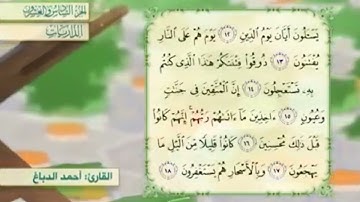 الجزء السادس والعشرون
الذاريات
يَسْـَٔلُونَ أَيَّانَ يَوْمُ ٱلدِّينِ ١٢ يَوْمَ هُمْ عَلَى ٱلنَّارِ
يُفْتَنُونَ ١٣ ذُوقُوا۟ فِتْنَتَكُمْ هَٰذَا ٱلَّذِى كُنتُم
بِهِۦ تَسْتَعْجِلُونَ ١٤ إِنَّ ٱلْمُتَّقِينَ فِى جَنَّٰتٍ
وَعُيُونٍ ١٥ ءَاخِذِينَ مَآ ءَاتَىٰهُمْ رَبُّهُمْ ۚ إِنَّهُمْ كَانُوا۟
قَبْلَ ذَٰلِكَ مُحْسِنِينَ ١٦ كَانُوا۟ قَلِيلًا مِّنَ ٱلَّيْلِ مَا
يَهْجَعُونَ ١٧ وَبِٱلْأَسْحَارِ هُمْ يَسْتَغْفِرُونَ ١٨
القارئ: أحمد الدباغ